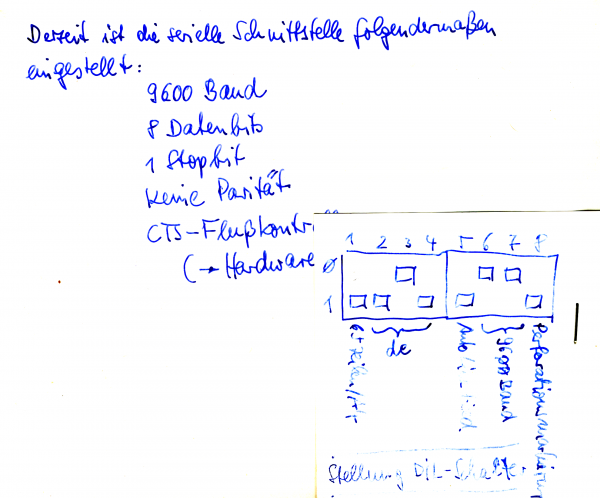 Derzeit ist die serielle Schnittstelle folgendermaßen
eingestellt:
9600 Baud
8 Datenbits
1 Stopbit
Keine Parität
CTS-Flußkontr
(→ Hardware
1 2 3 4 5 6 7 8
0
1
de
9600 Baud
Stellung DIL-Schalter